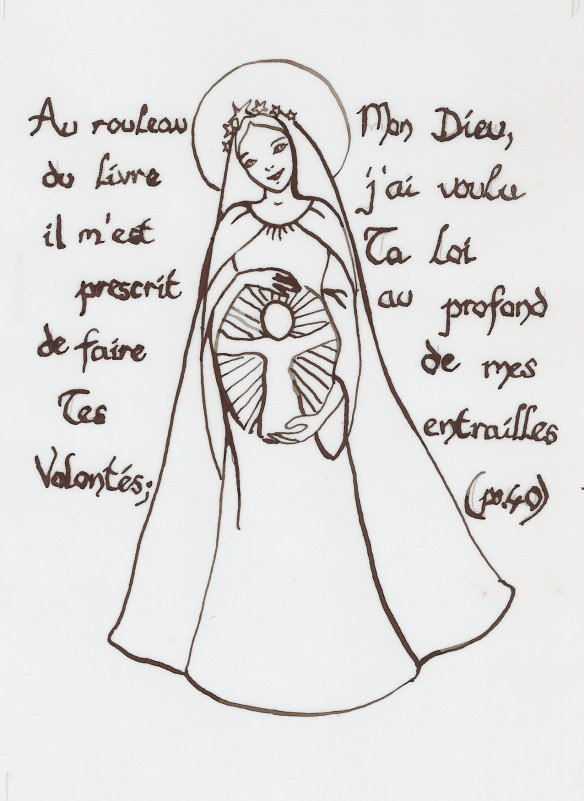 Au rouleau
du livre
il m'est
prescrit
de faire
Tes
Volontés;
Mon Dieu,
j'ai voulu
Ta loi
au profond
de mes
entrailles
(ps.40)